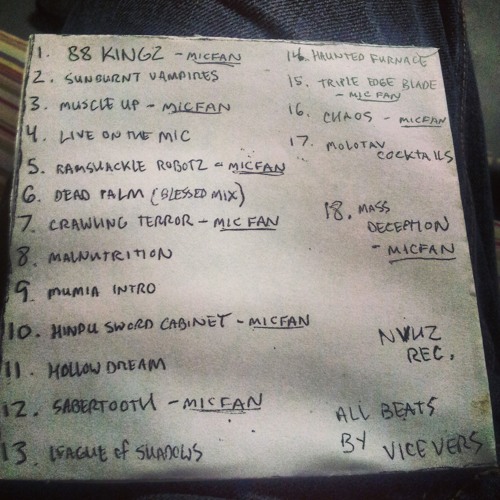 1. 88 KINGZ - MICFAN
2. SUNBURNT VAMPIRES
3. MUSCLE UP - MICFAN
4. LIVE ON THE MIC
5. RAMSHACKLE ROBOTZ - MICFAN
6. DEAD PALM (BLESSED MIX)
7. CRAWLING TERROR - MIC FAN
8. MALNUTRITION
9. MUMIA INTRO
10. HINDU SWORD CABINET - MICFAN
11. HOLLOW DREAM
12. SABERTOOTH - MICFAN
13. LEAGUE of SHADOWS
14. HAUNTED FURNACE
15. TRIPLE EDGE BLADE
- MIC FAN
16. CHAOS - MICFAN
17. MOLOTAV
COCKTAILS
18. MASS
DECEPTION
- MICFAN
REC.
ALL BEATS
BY VICE VERS